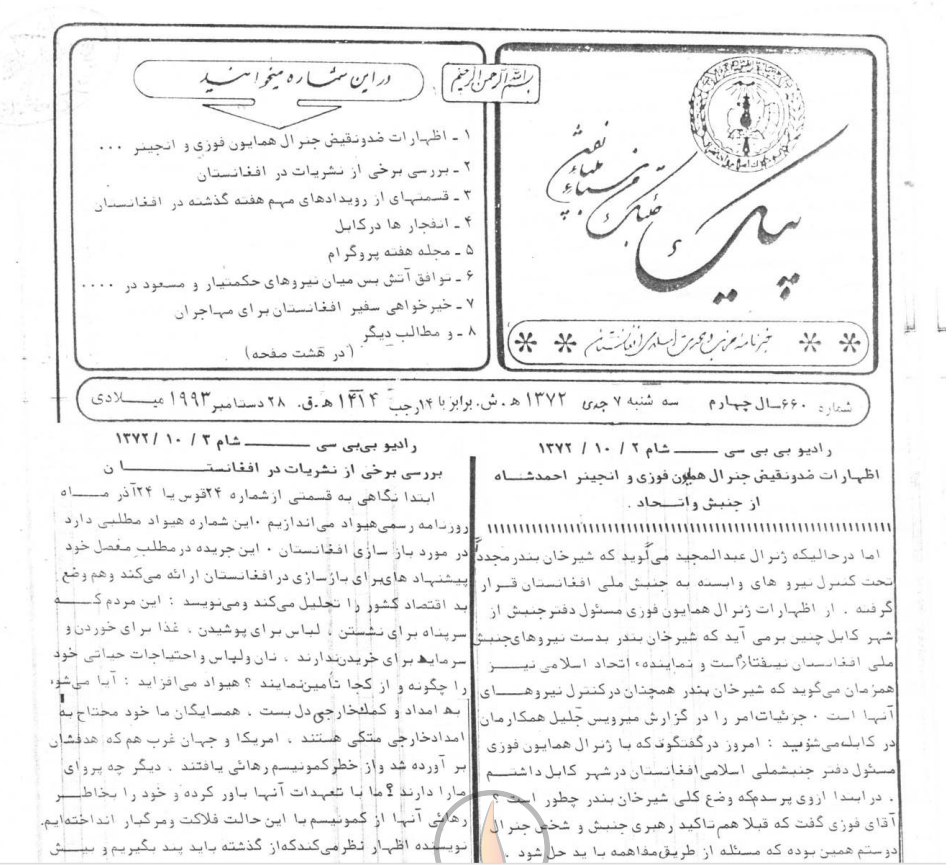 بسم الله الرحمن الرحیم
پیک
خبرنامه حزب وحدت اسلامی افغانستان
در این شماره میخوانید
۱ ـ اظهارات ضدونقیض جنرال همایون فوزی و انجینر ...
۲ ـ بررسی برخی از نشریات در افغانستان
۳ ـ قسمتهای از رویدادهای مهم هفته گذشته در افغانستان
۴ ـ انفجار ها درکابل
۵ ـ مجله هفته پروگرام
۶ ـ توافق آتش بس میان نیروهای حکمتیار و مسعود در ....
۷ ـ خیرخواهی سفیر افغانستان برای مهاجران
۸ ـ و مطالب دیگر
(در هشت صفحه)
شماره ۶۶۰ سال چهارم سه شنبه ۷ جدی ۱۳۷۲ ه‍.ش. برابر با ۱۴رجب ۱۴۱۴ ه‍.ق. ۲۸ دسامبر ۱۹۹۳ میلادی
رادیو بی بی سی ــــــــ شام ۲ / ۱۰ / ۱۳۷۲
اظهارات ضدونقیض جنرال همایون فوزی و انجینر احمدشاه
از جنبش واتحاد .
اما درحالیکه ژنرال عبدالمجید می‌گوید که شیرخان بندر مجدداً
تحت کنترل نیرو های وابسته به جنبش ملی افغانستان قرار
گرفته . از اظهارات ژنرال همایون فوزی مسئول دفترجنبش از
شهر کابل چنین برمی آید که شیرخان بندر بدست نیروهای‌جنبش
ملی افغانستان نیفتاد‌است و نماینده‌ء اتحاد اسلامی نیز
همزمان می‌گوید که شیرخان بندر همچنان درکنترل نیروهای
آنها است . جزئیات‌امر را در گزارش میرویس جلیل همکارمان
در کابل‌می‌شنوید : امروز درگفتگوئی‌که با ژنرال همایون فوزی
مسئول دفتر جنبش‌ملی اسلامی‌افغانستان درشهر کابل داشتم
. درابتدا ازوی پرسدم‌که وضع کلی شیرخان بندر چطور است ؟
آقای فوزی گفت که قبلا هم‌تاکید رهبری جنبش و شخص جنرال
دوستم همین بوده که مسئله از طریق‌مفاهمه با ید حل شود .
رادیو بی‌بی سی ــــــــ شام ۳ / ۱۰ / ۱۳۷۲
بررسی برخی از نشریات در افغانستـــــان
ابتدا نگاهی به قسمتی ازشماره ۲۴قوس یا ۲۴آذر مــاه
روزنامه رسمی‌هیواد می‌اندازیم .این شماره هیواد مطلبی دارد
در مورد باز سازی افغانستان . این جریده درمطلب مفصل خود
پیشنهاد های‌برای بازسازی درافغانستان ارائه می‌کند وهم وضع
بد اقتصاد کشور را تحلیل می‌کند ومی‌نویسد : این مردم کــه
سرپناه برای نشستن ، لباس برای پوشیدن ، غذا برای خوردن و
سرمایه برای خریدن‌ندارند ، نان ولباس واحتیاجات حیاتی خود
را چگونه و از کجا تامین‌نمایند ؟ هیواد می‌افزاید : آیا می‌شود
به امداد و کمک‌خارجی‌دل بست ، همسایگان ما خود محتاج به
امدادخارجی متکی هستند ، امریکا و جهان غرب هم که هدفشان
بر آورده شد واز خطرکمونیسم رهائی یافتند ، دیگر چه پروای
مارا دارند ؟ما با تعهدات آنها باور کرده و خود را بخاطر
رهائی آنها از کمونیسم با این حالت فلاکت ومرگبار انداخته‌ایم.
نویسنده اظهار نظرمی‌کندکه‌از گذشته باید پند بگیریم و بیش